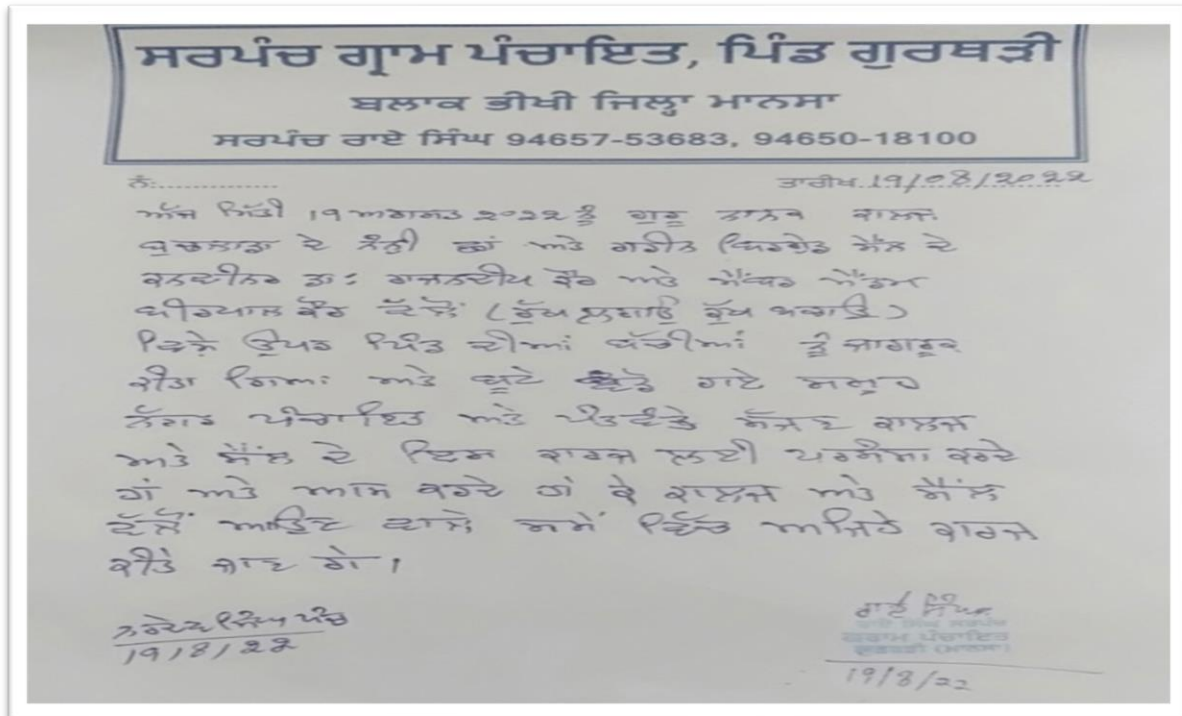 ਸਰਪੰਚ ਗ੍ਰਾਮ ਪੰਚਾਇਤ, ਪਿੰਡ ਗੁਰਥੜੀ
ਬਲਾਕ ਭੀਖੀ ਜਿਲ੍ਹਾ ਮਾਨਸਾ
ਸਰਪੰਚ ਰਾਏ ਸਿੰਘ 94657-53683, 94650-18100
ਨੰ:............. ਤਾਰੀਖ 19/08/2022
ਅੱਜ ਮਿੱਤੀ 19 ਅਗਸਤ 2022 ਨੂੰ ਗੁਰੂ ਨਾਨਕ ਕਾਲਜ
ਬੁਢਲਾਡਾ ਦੇ ਅਤੇ ਗਰੀਨ ਸੈੱਲ ਦੇ
ਕਨਵੀਨਰ ਡਾ: ਗਗਨਦੀਪ ਕੌਰ ਅਤੇ ਮੈਂਬਰ ਮੈਡਮ
ਵੀਰਪਾਲ ਕੌਰ ਵੱਲੋਂ (ਰੁੱਖ ਲਗਾਉ ਰੁੱਖ ਬਚਾਉ)
ਵਿਸ਼ੇ ਉਪਰ ਪਿੰਡ ਦੀਆਂ ਬੱਚੀਆਂ ਨੂੰ ਜਾਗਰੂਕ
ਕੀਤਾ ਗਿਆ ਅਤੇ ਬੂਟੇ ਵੰਡੇ ਗਏ ਸਮੂਹ
ਨੱਗਰ ਪੰਚਾਇਤ ਅਤੇ ਪੰਤਵੰਤੇ ਸੱਜਣ ਕਾਲਜ
ਅਤੇ ਸੈੱਲ ਦੇ ਇਸ ਕਾਰਜ ਲਈ ਪਰਸੰਸਾ ਕਰਦੇ
ਹਾਂ ਅਤੇ ਆਸ ਕਰਦੇ ਹਾਂ ਕੇ ਕਾਲਜ ਅਤੇ ਸੈੱਲ
ਵੱਲੋਂ ਆਉਣ ਵਾਲੇ ਸਮੇਂ ਵਿੱਚ ਅਜਿਹੇ ਕਾਰਜ
ਕੀਤੇ ਜਾਣ ਗੇ।
ਸਿੰਘ ਪੰਚ
19/8/22
ਰਾਏ ਸਿੰਘ
ਰਾਏ ਸਿੰਘ ਸਰਪੰਚ
ਗ੍ਰਾਮ ਪੰਚਾਇਤ
ਗੁਰਥੜੀ (ਮਾਨਸਾ)
19/8/22